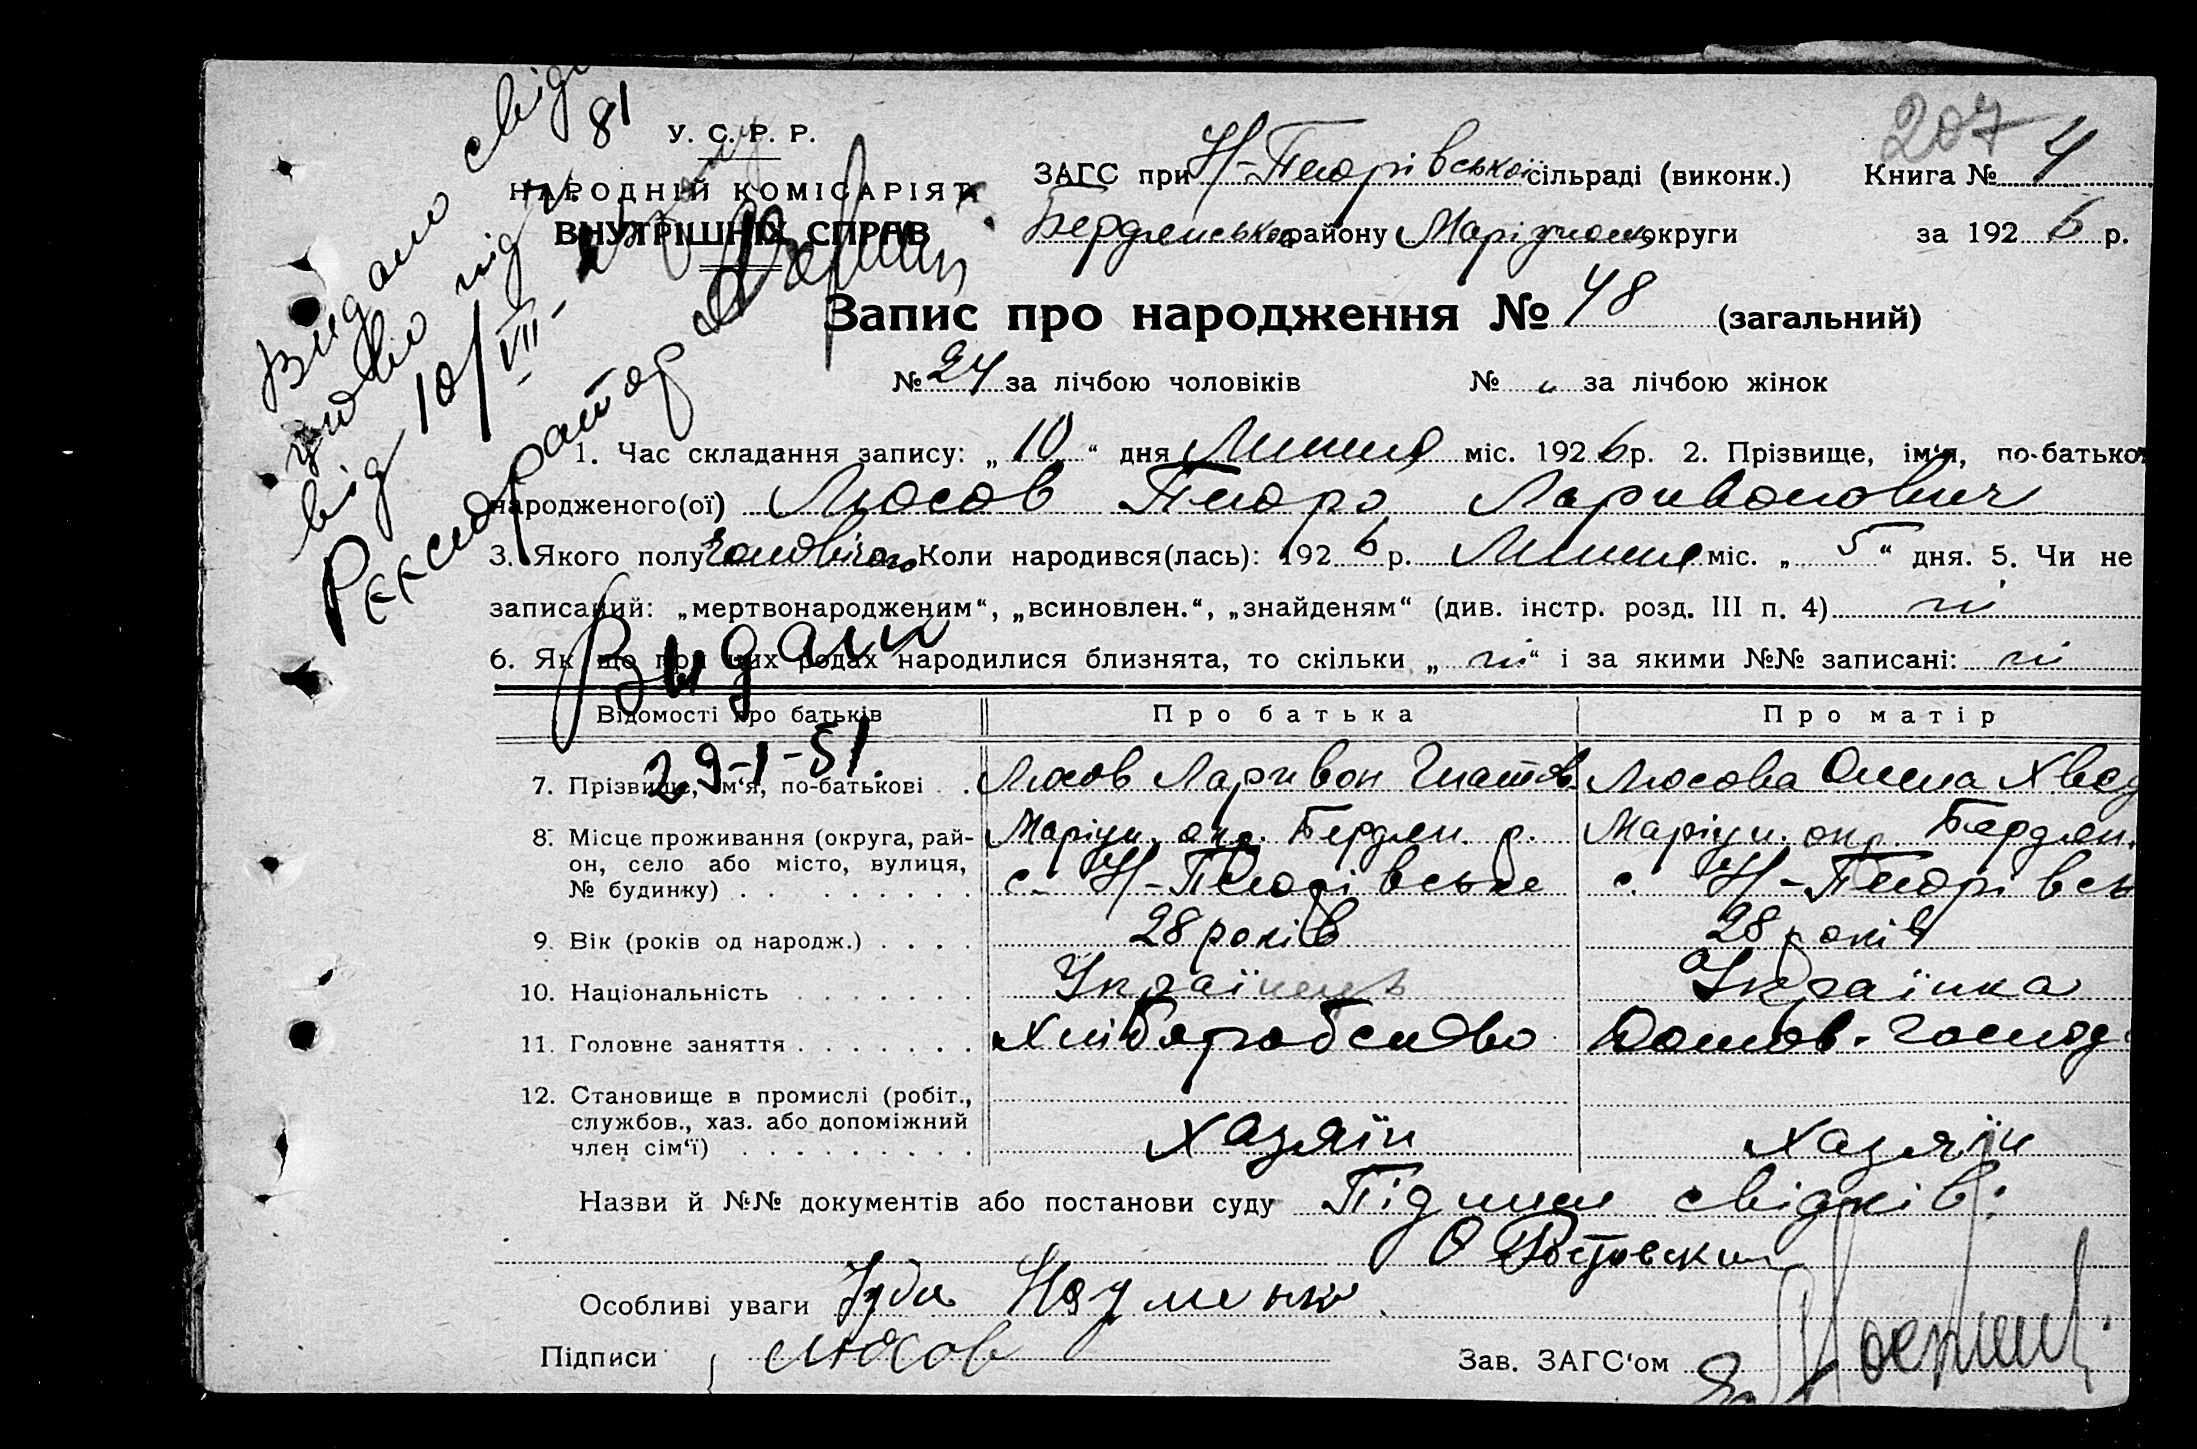 Видано свідо
цтво під № 81
від 10/VIII-
Реєстратор
У. С. Р. Р.
НАРОДНІЙ КОМІСАРІЯТ
ВНУТРІШНІХ СПРАВ
207
ЗАГС при Н-Петрівській сільраді (виконк.) Книга № 4
Бердянського району Маріупольс округи за 1926 р.
Запис про народження № 48 (загальний)
№ 24 за лічбою чоловіків № „ за лічбою жінок
1. Час складання запису: „10“ дня Липня міс. 1926 р. 2. Прізвище, ім'я, по-батькові
народженого(ої) Люсов Петро Ларивонович
3. Якого полу чоловічого Коли народився(лась): 1926 р. Липня міс. „5“ дня. 5. Чи не
записаний: „мертвонародженим“, „всиновлен.“, „знайденям“ (див. інстр. розд. III п. 4) ні
6. Як що при цих родах народилися близнята, то скільки „ні“ і за якими №№ записані: ні
Видали
29-1-51.
Відомості про батьків Про батька Про матір
7. Прізвище, ім'я, по-батькові . . Люсов Ларивон Гнатов. Люсова Олена Хвед
8. Місце проживання (округа, рай- Маріуп. окр. Бердян. р. Маріуп. окр. Бердян.
он, село або місто, вулиця, с. Н-Петрівське с. Н-Петрівсь
№ будинку) . . . . . . . .
9. Вік (років од народж.) . . . . 28 років 28 років
10. Національність . . . . . . . Українець Українка
11. Головне заняття . . . . . . . Хліборобство Домов. господ
12. Становище в промислі (робіт.,
службов., хаз. або допоміжний Хазяїн Хазяїн
член сім'ї) . . . . . . . . .
Назви й №№ документів або постанови суду Підписи свідків:
О Ростовский
Особливі уваги Науменко
Підписи Люсов Зав. ЗАГС'ом